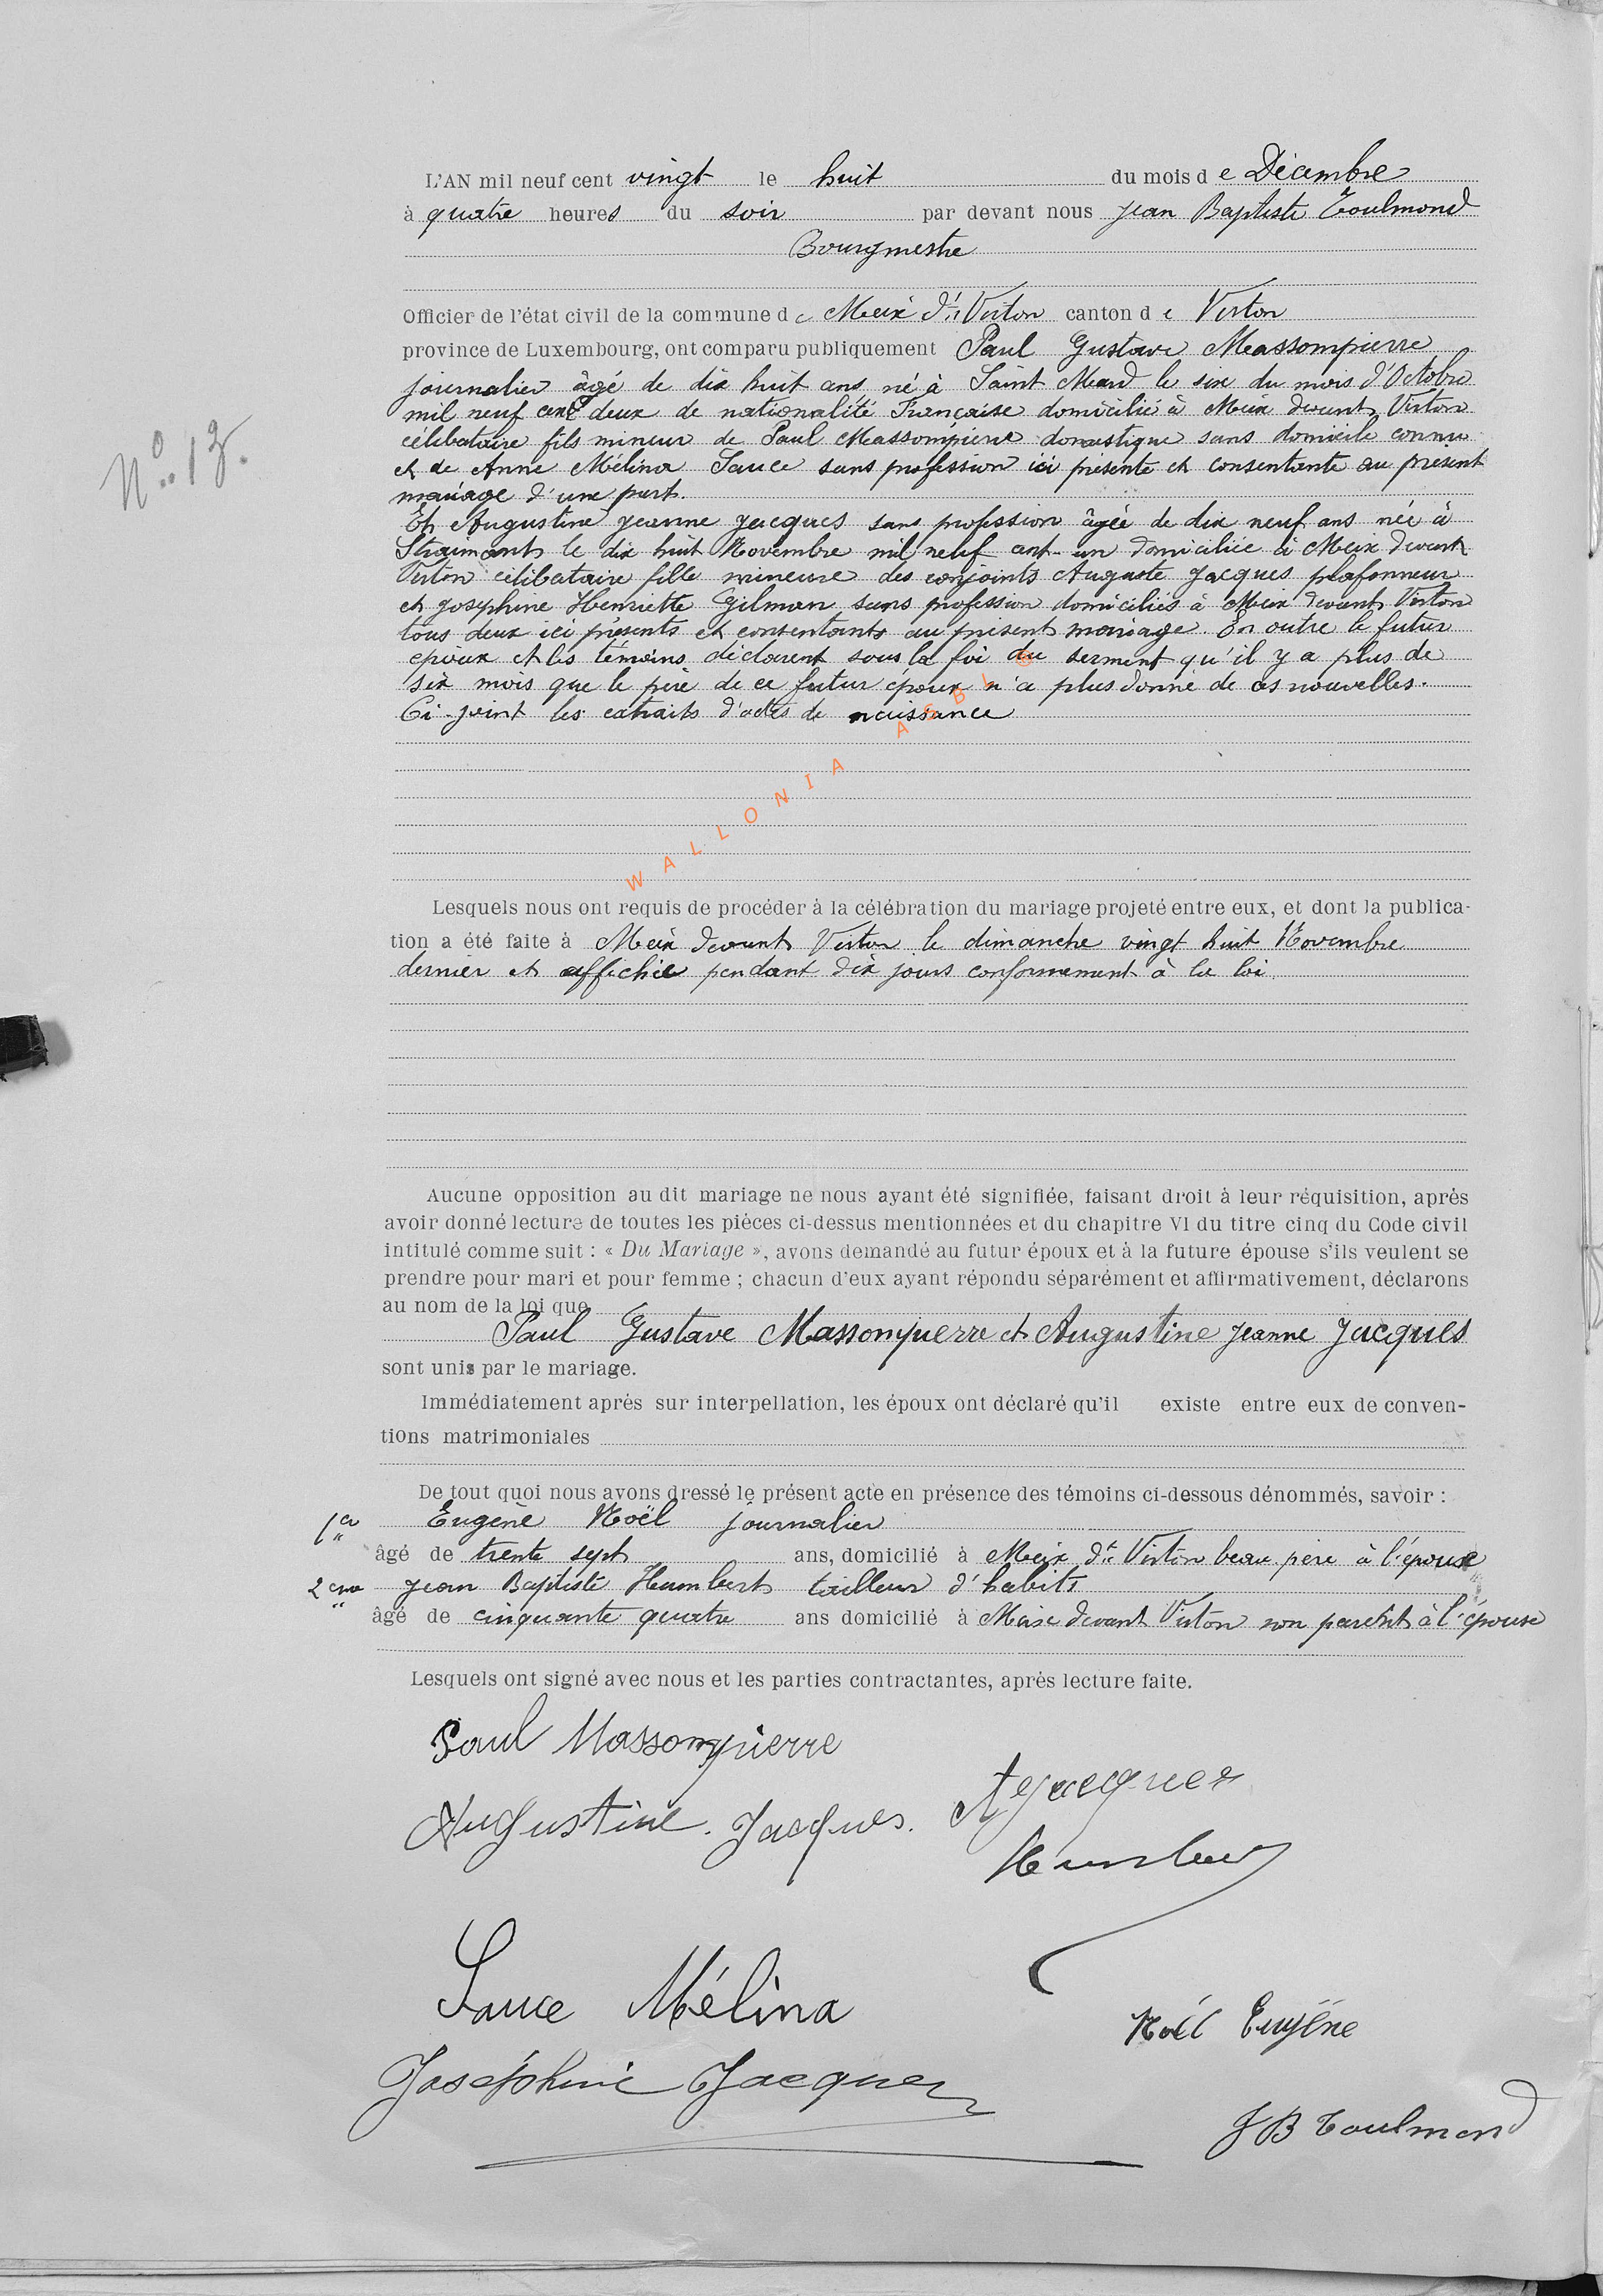 L'AN mil neuf cent vingt le huit du mois de Décembre
à quatre heures du soir par devant nous Jean Baptiste Toulmond
Bourgmestre
Officier de l'état civil de la commune de Meix d't Virton canton de Virton
province de Luxembourg, ont comparu publiquement Paul Gustave Massompierre
journalier âgé de dix huit ans né à Saint Mard le six du mois d'Octobre
mil neuf cent deux de nationalité Française domicilié à Meix devant Virton
célibataire fils mineur de Paul Massompierre domestique sans domicile connu
et de Anne Mélina Sauce sans profession ici présente et consentante au présent
mariage d'une part.
Et Augustine Jeanne Jacques sans profession âgée de dix neuf ans née à
Straimont le dix huit Novembre mil neuf cent un domiciliée à Meix devant
Virton célibataire fille mineure des conjoints Auguste Jacques plafonneur
et Josephine Henriette Gilman sans profession domiciliés à Meix devant Virton
tous deux ici présents et consentants au présent mariage. En outre le futur
époux et les témoins déclarent sous la foi du serment qu'il y a plus de
six mois que le père de ce futur époux n'a plus donné de ses nouvelles.
Ci-joint les extraits d'actes de naissance
WALLONIA ASBL
Lesquels nous ont requis de procéder à la célébration du mariage projeté entre eux, et dont la publica-
tion a été faite à Meix devant Virton le dimanche vingt huit Novembre
dernier et affichée pendant dix jours conformement à la loi
N° 13.
Aucune opposition au dit mariage ne nous ayant été signifiée, faisant droit à leur réquisition, après
avoir donné lecture de toutes les pièces ci-dessus mentionnées et du chapitre VI du titre cinq du Code civil
intitulé comme suit : « Du Mariage », avons demandé au futur époux et à la future épouse s'ils veulent se
prendre pour mari et pour femme ; chacun d'eux ayant répondu séparément et affirmativement, déclarons
au nom de la loi que
Paul Gustave Massompierre et Augustine Jeanne Jacques
sont unis par le mariage.
Immédiatement après sur interpellation, les époux ont déclaré qu'il existe entre eux de conven-
tions matrimoniales
De tout quoi nous avons dressé le présent acte en présence des témoins ci-dessous dénommés, savoir :
1er Eugène Noël journalier
âgé de trente sept ans, domicilié à Meix d't Virton beau père à l'épouse
2eme Jean Baptiste Humbert tailleur d'habits
âgé de cinquante quatre ans domicilié à Meix devant Virton non parent à l'épouse
Lesquels ont signé avec nous et les parties contractantes, après lecture faite.
Paul Massompierre
A Jacques
Augustine. Jacques.
Humbert
Sauce Mélina
Noël Eugène
Joséphine Jacques
J B Toulmond